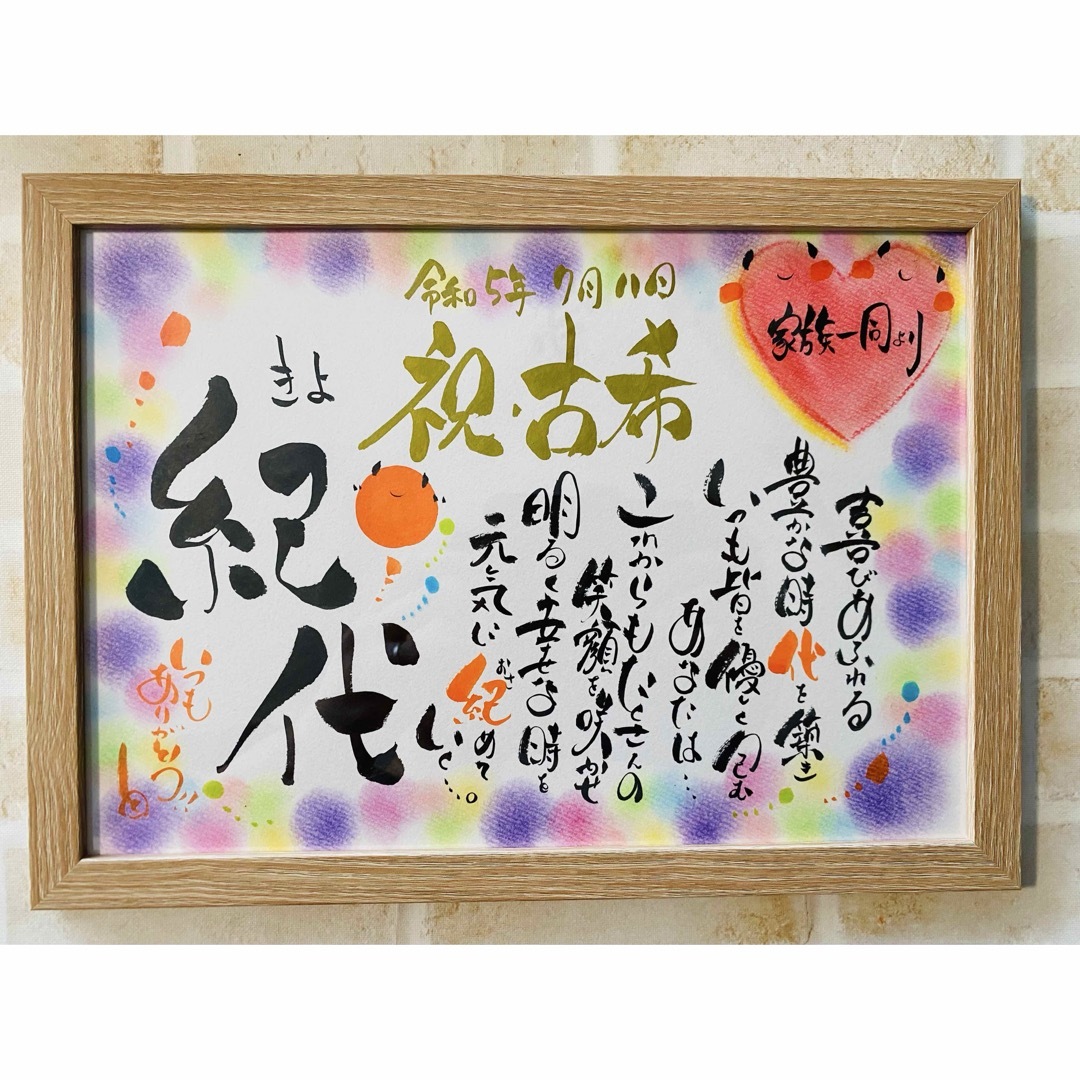 令和5年 7月11日
祝・古希
家族一同より
きよ
紀代
喜びあふれる
豊かな時代を築き
いつも皆を優しく包む
あなたは…
これからもたくさんの
笑顔を咲かせ
明るく幸せな時を
元気に紀めて
おさ
いく…。
いつも
ありがとう